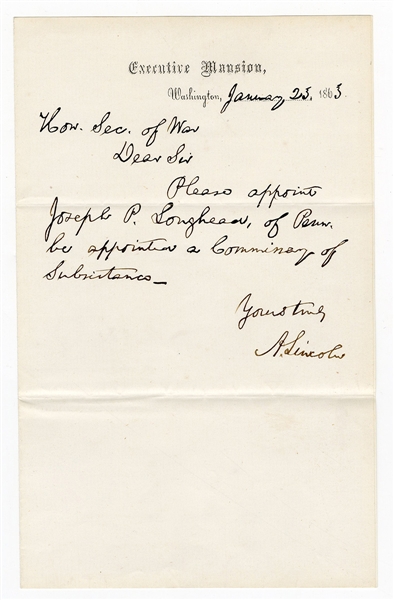 Executive Mansion,
Washington, January 23, 1863.
Hon. Sec. of War
Dear Sir
Please appoint
Joseph P. Loughead, of Penn.
be appointed a Commissary of
Subsistance—
Yours truly
A. Lincoln